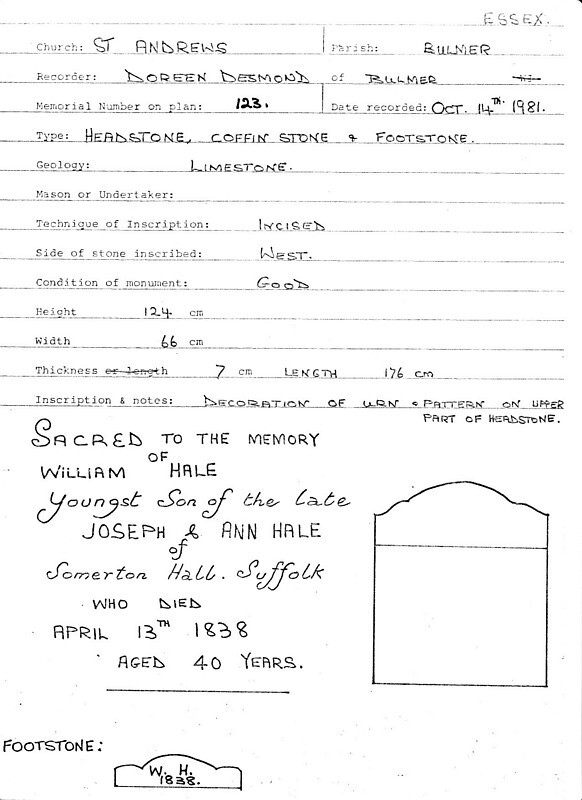 ESSEX.
Church: ST ANDREWS Parish: BULMER
Recorder: DOREEN DESMOND of BULMER
Memorial Number on plan: 123. Date recorded: OCT. 14TH. 1981.
Type: HEADSTONE, COFFIN STONE & FOOTSTONE.
Geology: LIMESTONE.
Mason or Undertaker:
Technique of Inscription: INCISED
Side of stone inscribed: WEST.
Condition of monument: GOOD
Height 124 cm
Width 66 cm
Thickness or length 7 cm LENGTH 176 cm
Inscription & notes: DECORATION OF URN & PATTERN ON UPPER
PART OF HEADSTONE.
SACRED TO THE MEMORY
OF
WILLIAM HALE
Youngst Son of the late
JOSEPH & ANN HALE
of
Somerton Hall. Suffolk
WHO DIED
APRIL 13TH 1838
AGED 40 YEARS.
FOOTSTONE:
W. H.
1838.